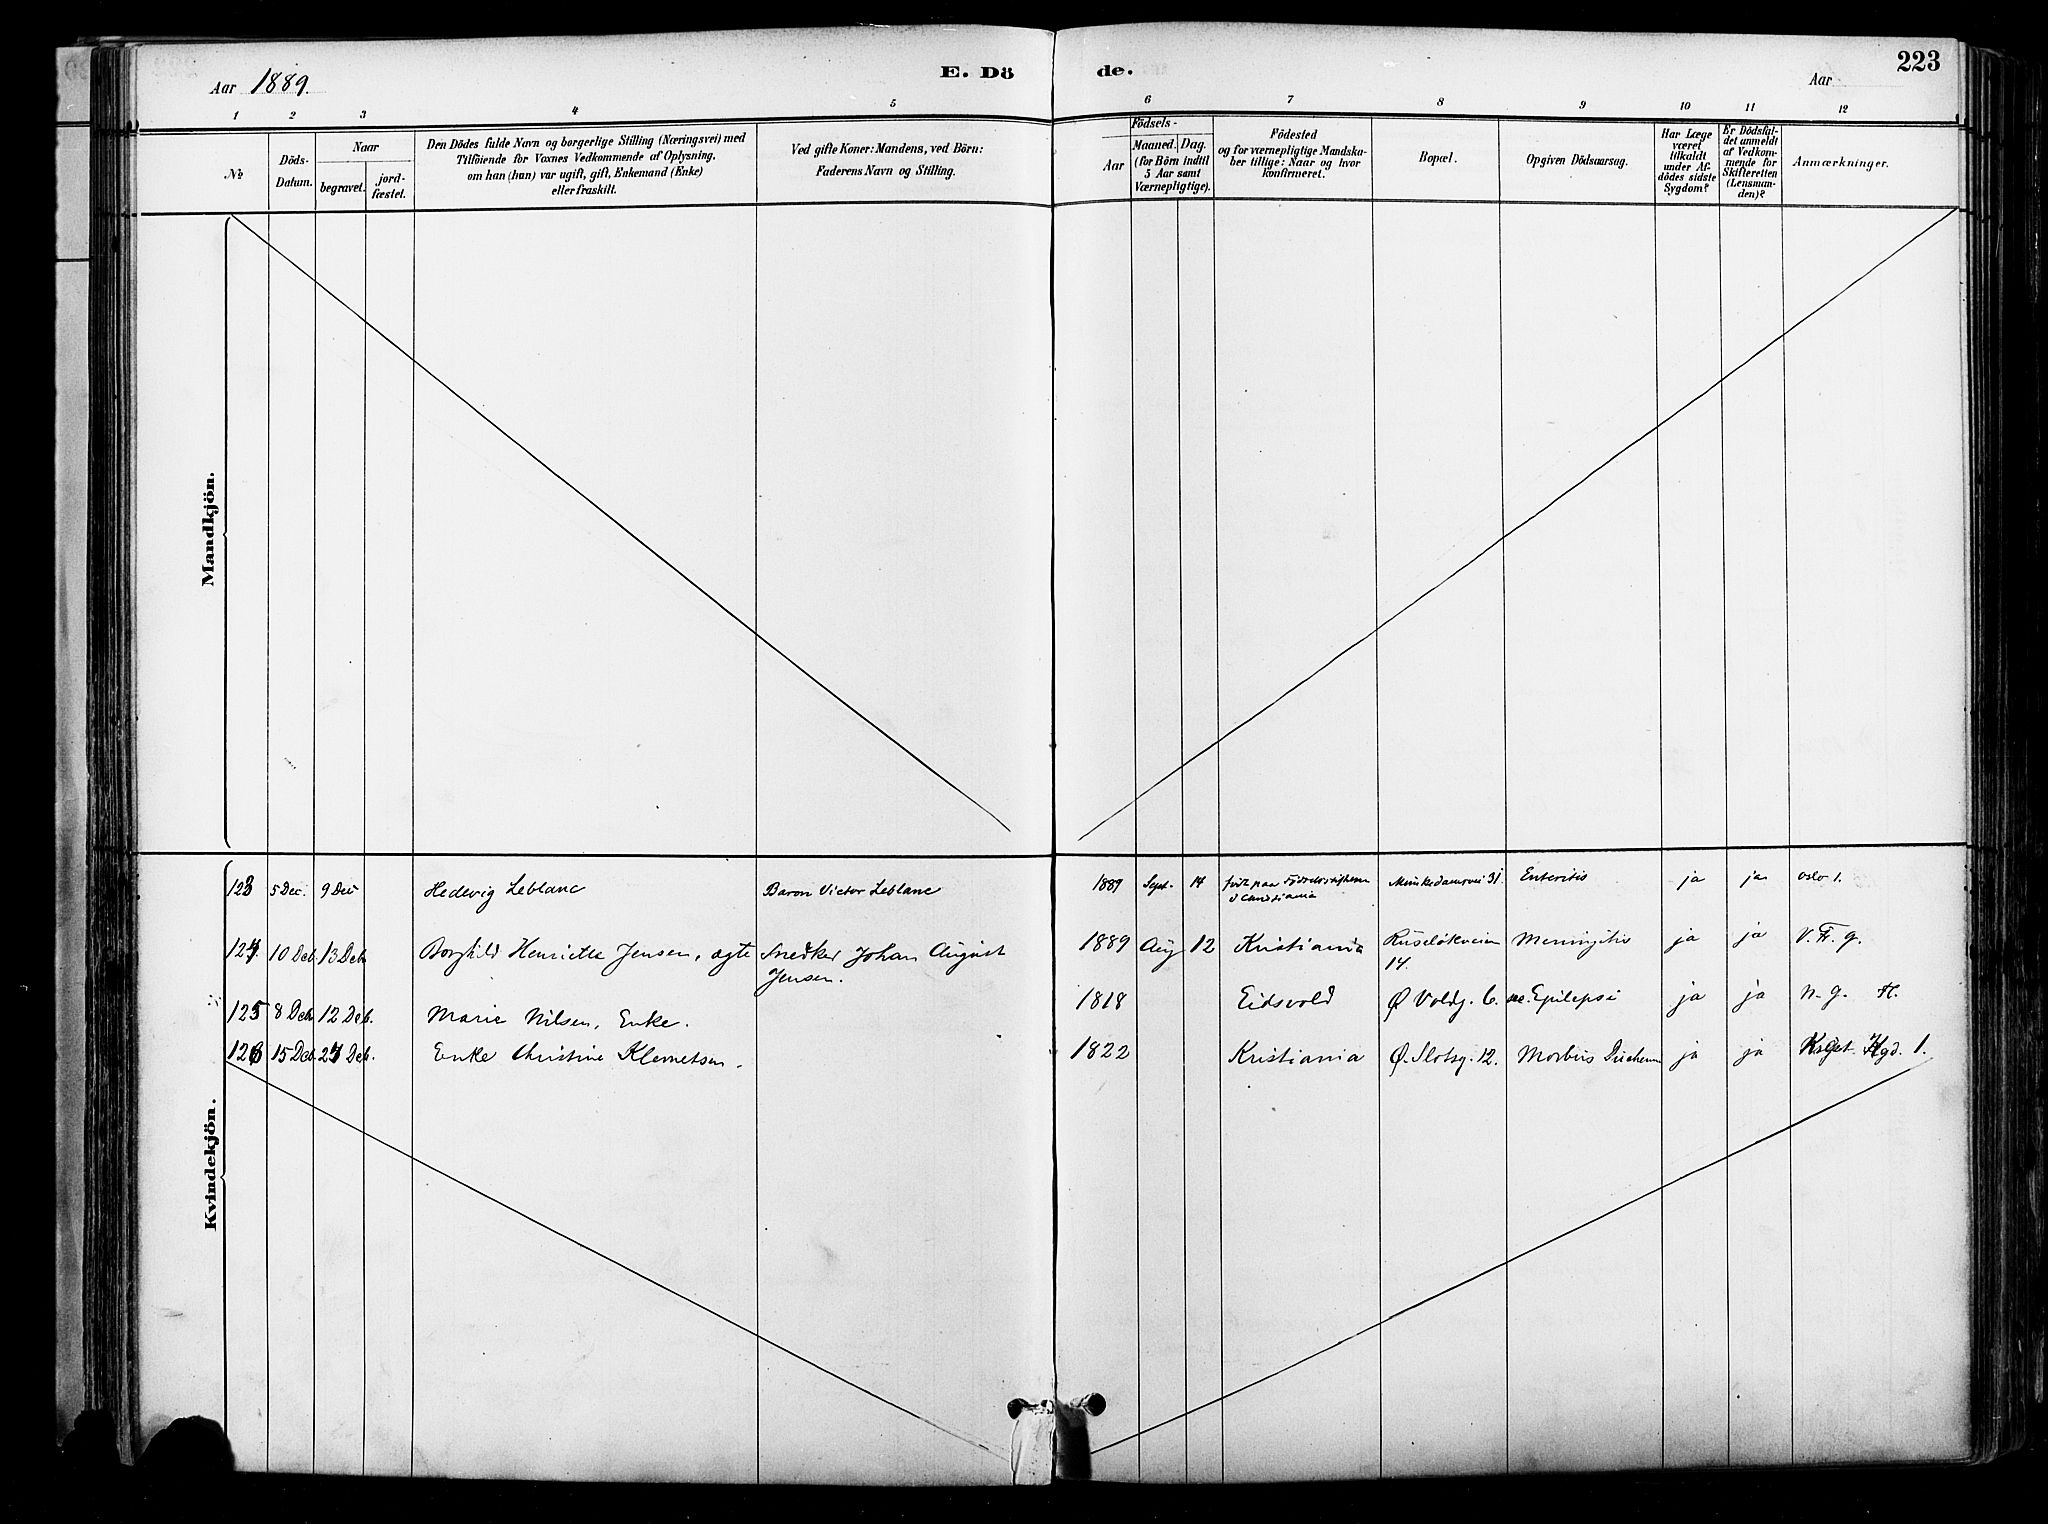 Aar 1889.
E. Dö
de.
Aar
223
1 2 3 4 5 6 7 8 9 10 11 12
No
Döds-
Datum.
Naar
begravet.
jord-
fæstet.
Den Dödes fulde Navn og borgerlige Stilling (Næringsvei) med
Tilföiende for Voxnes Vedkommende af Oplysning,
om han (hun) var ugift, gift, Enkemand (Enke)
eller fraskilt.
Ved gifte Koner: Mandens, ved Börn:
Faderens Navn og Stilling.
Födsels-
Aar
Maaned.
Dag.
(for Börn indtil
5 Aar samt
Værnepligtige).
Födested
og for værnepligtige Mandska-
ber tillige: Naar og hvor
konfirmeret.
Bopæl.
Opgiven Dödsaarsag.
Har Læge
været
tilkaldt
under Af-
dödes sidste
Sygdom?
Er Dödsfal-
det anmeldt
af Vedkom-
mende for
Skifteretten
(Lensman-
den)?
Anmærkninger.
Mandkjön.
Kvindekjön.
123 5 Dec. 9 Dec Hedevig Leblanc Baron Victor Leblanc 1889 Sept. 14 født paa Födselsstiftelsen Munkedamsvei 31. Enteritis ja ja Oslo 1.
124. 10 Deb. 13 Deb Borghild Henriette Jensen, ægte Snedker Johan August 1889 Aug 12 Kristiania Ruseløkveien Meningitis ja ja V. Fr. g.
Jensen. 14.
125 8 Deb 12 Deb. Marie Nilsen, Enke. 1818 Eidsvold Ø Voldg. 6. Epilepsi ja ja N. g. H.
126 15 Deb. 21 Deb. Enke Christine Klemetsen. 1822 Kristiania Ø. Slotsg. 12. Morbus ja ja Hgd. 1.